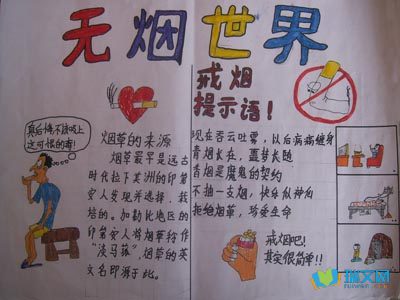 无烟世界
戒烟
提示语！
真后悔不该吸上
这可恨的毒！
烟草的来源
烟草最早是远古
时代拉丁美洲的印第
安人发现并选择、栽
培的。加勒比地区的
印第安人将烟草称作
"淡马菰"烟草的英
文名即源于此。
现在吞云吐雾，以后病痛缠身
青烟长在，噩梦长随
香烟是魔鬼的契约
不抽一支烟，快乐似神仙
拒绝烟草，珍爱生命
戒烟吧！
其实很简单！！
瑞文网